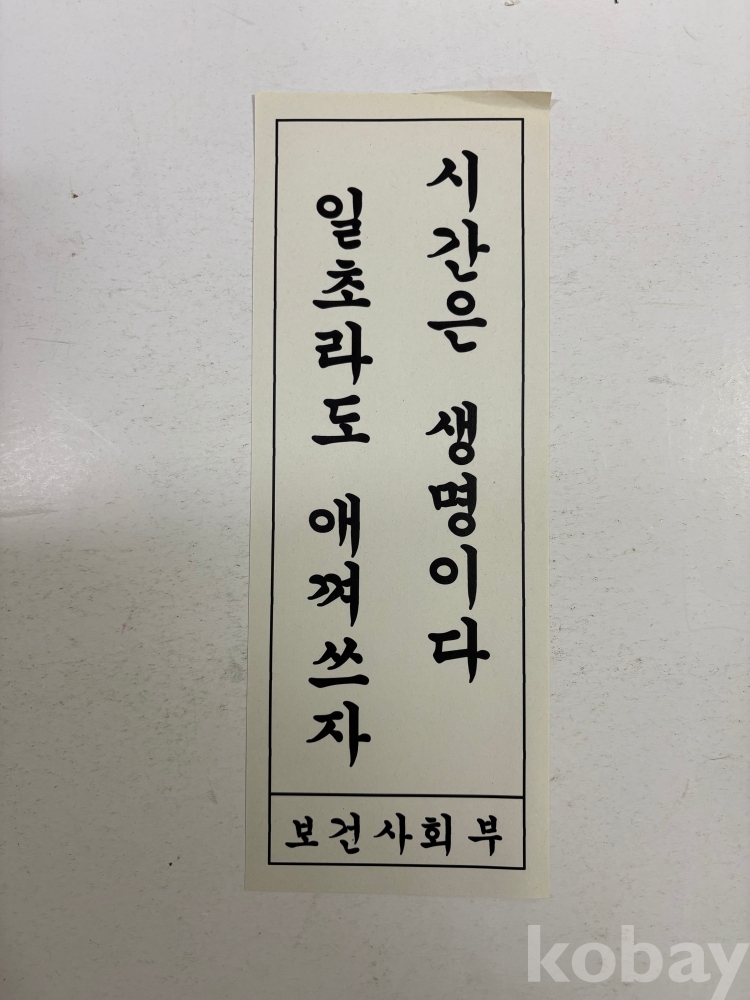 시간은 생명이다
일초라도 애껴쓰자
보건사회부
kobay